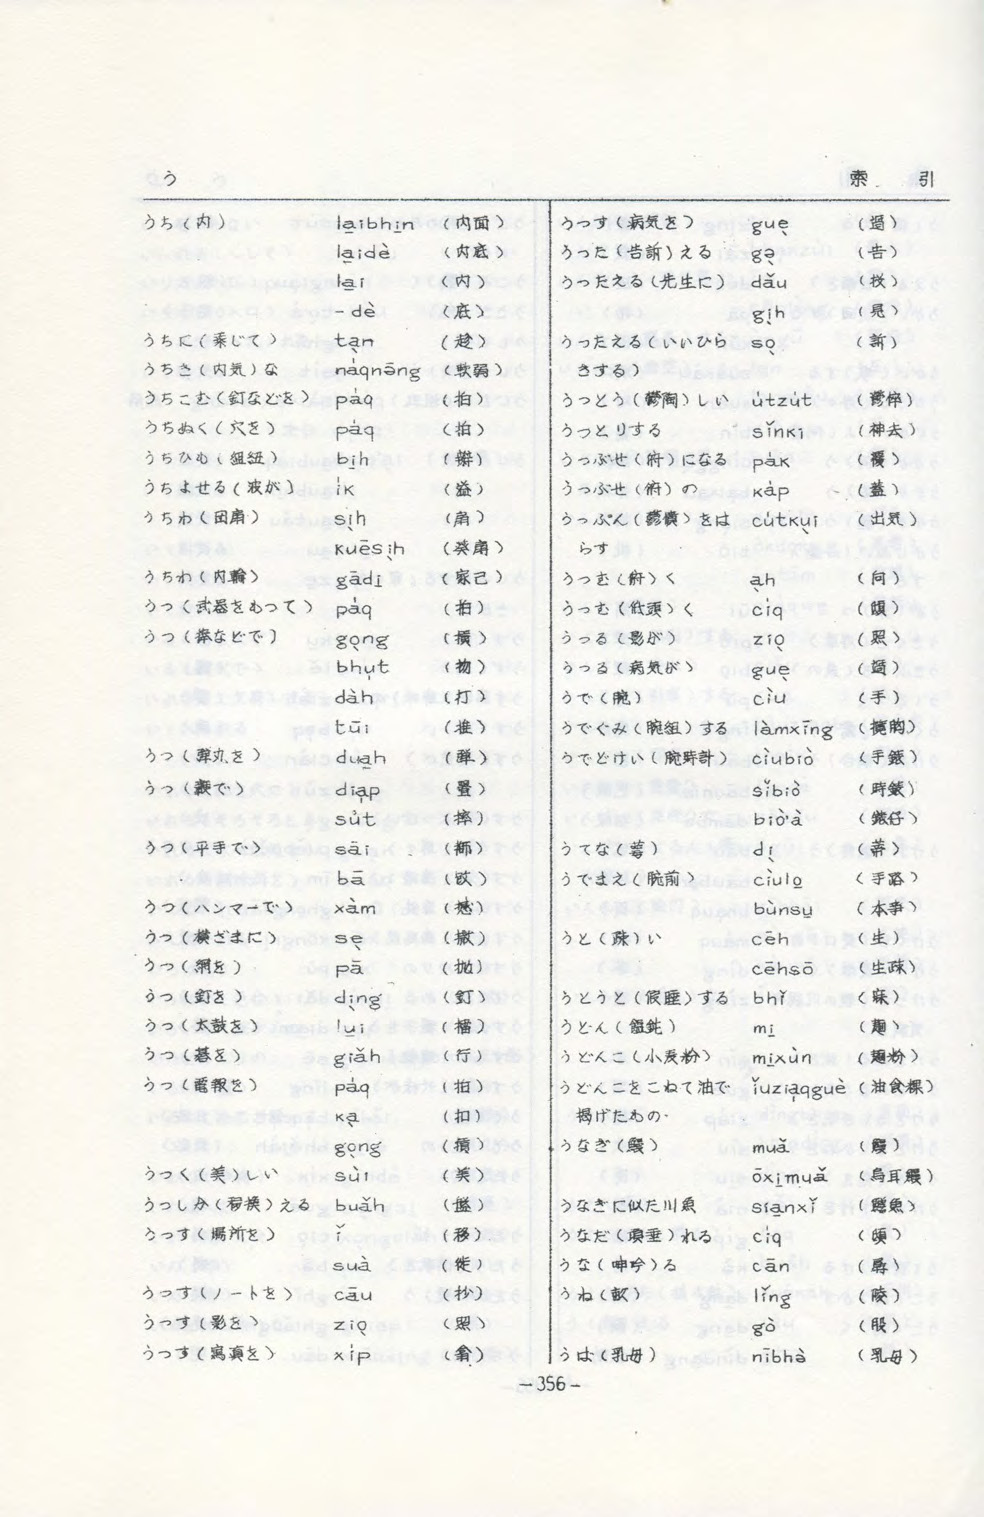 う
索引
うち(内) la̱ibhi̱n (内面)
la̱idè (内底)
la̱i (内)
-dè (底)
うちに(乗じて) ta̱n (趁)
うちき(内気)な nàqnōng (軟弱)
うちこむ(釘などを) pȧq (拍)
うちぬく(穴を) pȧq (拍)
うちひも(組紐) bi̱h
うちよせる(波が) i̇k (溢)
うちわ(団扇) si̱h (扇)
kuēsi̱h (葵扇)
うちわ(内輪) gādi̱ (家己)
うつ(武器をもって) pȧq (拍)
うつ(棒などで) go̱ng (摃)
bhu̱t
dàh (打)
tūi
うつ(弾丸を) dua̱h (弾)
うつ(鞭で) dia̱p
su̇t (摔)
うつ(平手で) sāi
bā
うつ(ハンマーで) xàm
うつ(横ざまに) se̱
うつ(網を) pā (抛)
うつ(釘を) di̱ng (釘)
うつ(太鼓を) lu̱i (擂)
うつ(碁を) giǎh (行)
うつ(電報を) pȧq (拍)
ka̱ (扣)
go̱ng (摃)
うつく(美)しい sùi (美)
うつしか(移換)える buǎh
うつす(場所を) ǐ (移)
suà (徙)
うつす(ノートを) cāu (抄)
うつす(影を) zio̱ (照)
うつす(寫真を) xi̇p (翕)
うつす(病気を) gue̱ (過)
うった(告訴)える gə̱ (告)
うったえる(先生に) dǎu (投)
gi̱h (見)
うったえる(いいひら so̱ (訴)
きする)
うっとう(鬱陶)しい u̇tzu̇t (鬱悴)
うっとりする sǐnki̱ (神去)
うつぶせ(俯)になる pȧk (覆)
うつぶせ(俯)の kȧp (蓋)
うっぷん(鬱憤)をは cu̇tku̱i (出気)
らす
うつむ(俯)く a̱h
うつむ(低頭)く ci̇q
うつる(影が) zio̱ (照)
うつる(病気が) gue̱ (過)
うで(腕) cìu (手)
うでぐみ(腕組)する làmxīng (攬胸)
うでどけい(腕時計) cìubiò (手錶)
sǐbiò (時錶)
biò'à (錶仔)
うてな(萼) di̱ (蒂)
うでまえ(腕前) cìulo̱ (手路)
bùnsu̱ (本事)
うと(疎)い cēh (生)
cēhsō (生疎)
うとうと(假睡)する bhǐ
うどん(饂飩) mi̱ (麺)
うどんこ(小麦粉) mi̱xùn (麺粉)
うどんこをこねて油で ǐuzia̱qguè (油食粿)
揚げたもの
うなぎ(鰻) muǎ (鰻)
ōxi̱muǎ (烏耳鰻)
うなぎに似た川魚 sia̱nxǐ (鱔魚)
うなだ(項垂)れる ci̇q
うな(呻吟)る cān
うね(畝) lǐng
gò (股)
うば(乳母) nībhə̀ (乳母)
-356-